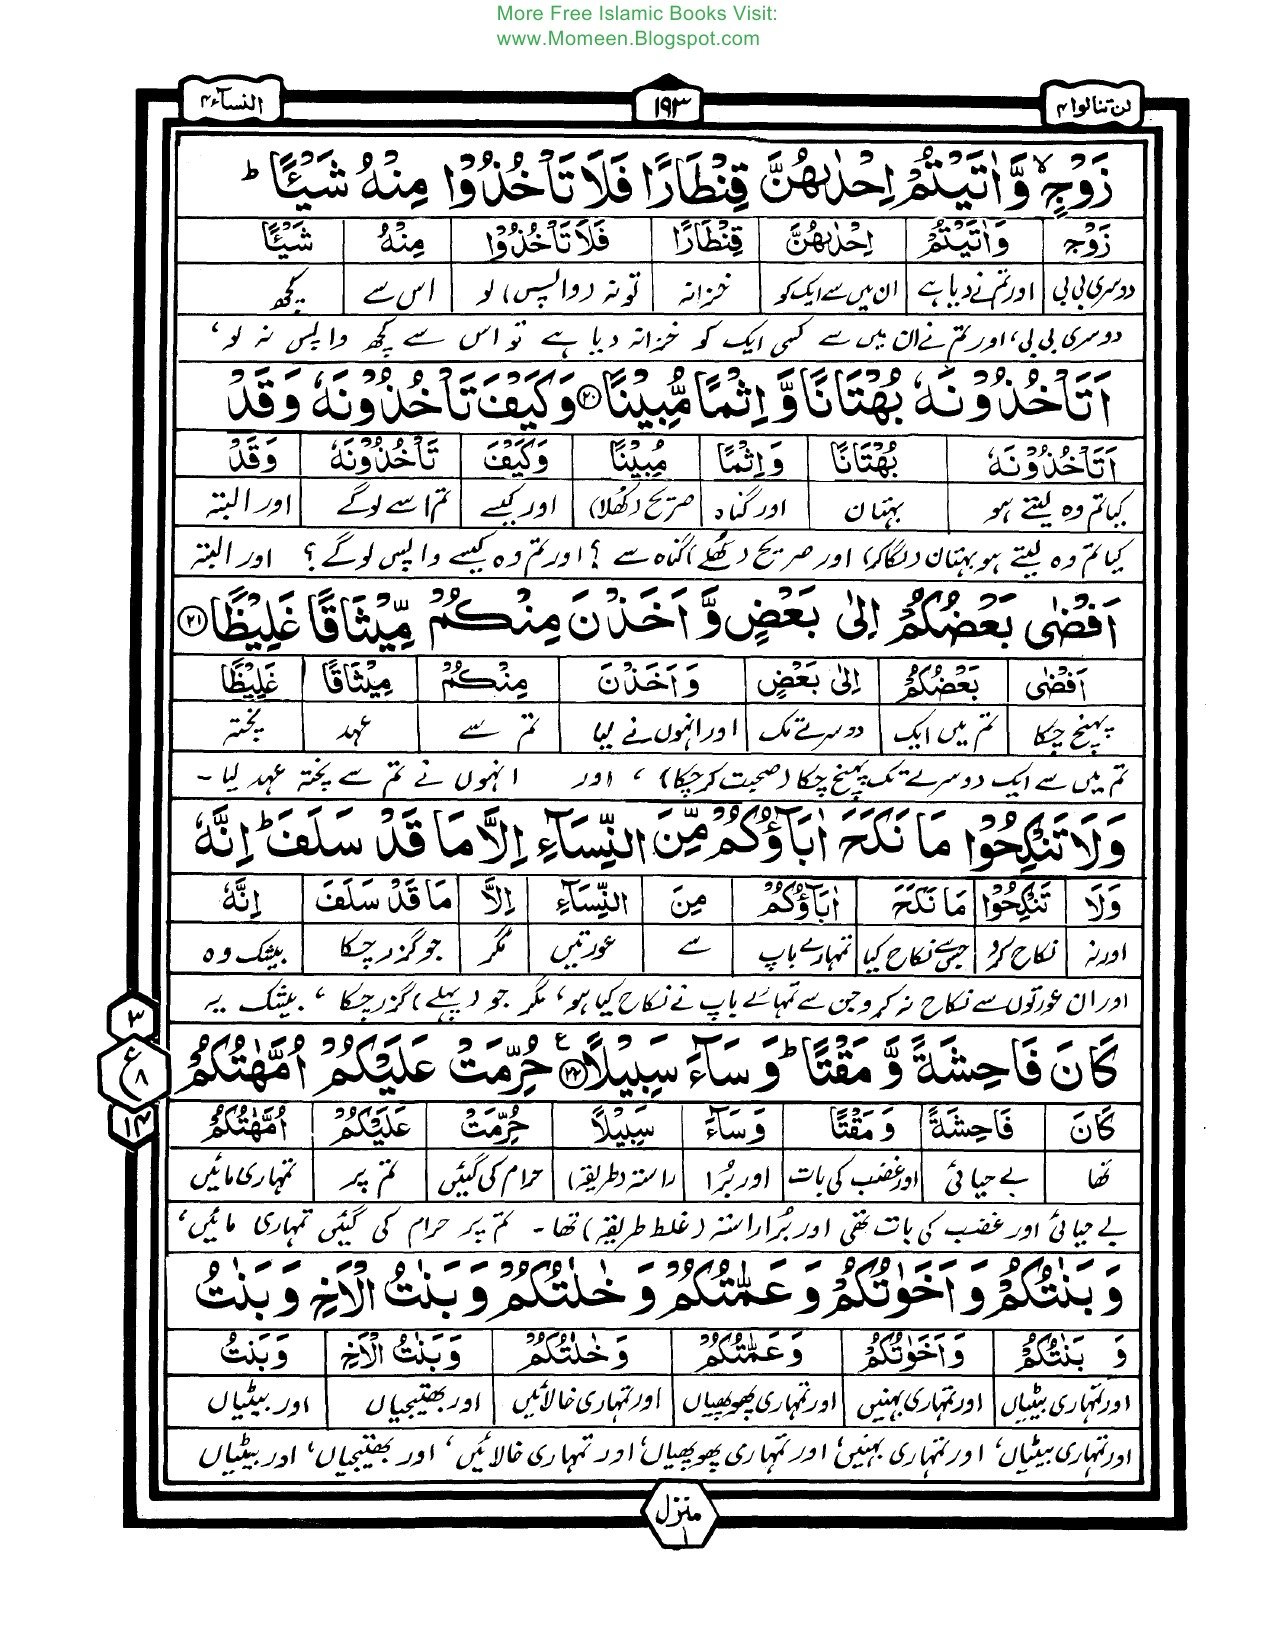 More Free Islamic Books Visit:
www.Momeen.Blogspot.com
لن تنالوا ۴ ۱۹۳ النسآء ۴
زَوْجٍ ۙ وَّاٰتَيْتُمْ اِحْدٰىهُنَّ قِنْطَارًا فَلَا تَاْخُذُوْا مِنْهُ شَيْئًا ؕ
زَوْجٍ وَاٰتَيْتُمْ اِحْدٰىهُنَّ قِنْطَارًا فَلَا تَاْخُذُوْا مِنْهُ شَيْئًا
دوسری بی بی اور تم نے دیا ہے ان میں سے ایک کو خزانہ تو نہ (واپس) لو اس سے کچھ
دوسری بی بی، اور تم نے ان میں سے کسی ایک کو خزانہ دیا ہے تو اس سے کچھ واپس نہ لو،
اَتَاْخُذُوْنَهٗ بُهْتَانًا وَّاِثْمًا مُّبِيْنًا ۲۰ وَكَيْفَ تَاْخُذُوْنَهٗ وَقَدْ
اَتَاْخُذُوْنَهٗ بُهْتَانًا وَاِثْمًا مُبِيْنًا وَكَيْفَ تَاْخُذُوْنَهٗ وَقَدْ
کیا تم وہ لیتے ہو بہتان اور گناہ صریح (کھلا) اور کیسے تم اسے لوگے اور البتہ
کیا تم وہ لیتے ہو بہتان (لگاکر) اور صریح (کھلے) گناہ سے ؟ اور تم وہ کیسے واپس لوگے ؟ اور البتہ
اَفْضٰى بَعْضُكُمْ اِلٰى بَعْضٍ وَّاَخَذْنَ مِنْكُمْ مِّيْثَاقًا غَلِيْظًا ۲۱
اَفْضٰى بَعْضُكُمْ اِلٰى بَعْضٍ وَاَخَذْنَ مِنْكُمْ مِيْثَاقًا غَلِيْظًا
پہنچ چکا تم میں ایک دوسرے تک اور انہوں نے لیا تم سے عہد پختہ
تم میں سے ایک دوسرے تک پہنچ چکا (صحبت کرچکا)، اور انہوں نے تم سے پختہ عہد لیا ۔
وَلَا تَنْكِحُوْا مَا نَكَحَ اٰبَآؤُكُمْ مِّنَ النِّسَآءِ اِلَّا مَا قَدْ سَلَفَ ؕ اِنَّهٗ
وَلَا تَنْكِحُوْا مَا نَكَحَ اٰبَآؤُكُمْ مِنَ النِّسَآءِ اِلَّا مَا قَدْ سَلَفَ اِنَّهٗ
اور نہ نکاح کرو جس نکاح کیا تمہارے باپ سے عورتیں مگر جو گزر چکا بیشک وہ
اور ان عورتوں سے نکاح نہ کرو جن سے تمہارے باپ نے نکاح کیا ہو، مگر جو (پہلے) گزر چکا ، بیشک یہ
كَانَ فَاحِشَةً وَّمَقْتًا ؕ وَسَآءَ سَبِيْلًا ۲۲ ع حُرِّمَتْ عَلَيْكُمْ اُمَّهٰتُكُمْ
۳
ع ۸
۱۴
كَانَ فَاحِشَةً وَمَقْتًا وَسَآءَ سَبِيْلًا حُرِّمَتْ عَلَيْكُمْ اُمَّهٰتُكُمْ
تھا بے حیائی اور غضب کی بات اور بُرا راستہ (طریقہ) حرام کی گئیں تم پر تمہاری مائیں
بے حیائی اور غضب کی بات تھی اور بُرا راستہ (غلط طریقہ) تھا ۔ تم پر حرام کی گئیں تمہاری مائیں،
وَبَنٰتُكُمْ وَاَخَوٰتُكُمْ وَعَمّٰتُكُمْ وَخٰلٰتُكُمْ وَبَنٰتُ الْاَخِ وَبَنٰتُ
وَ بَنٰتُكُمْ وَاَخَوٰتُكُمْ وَعَمّٰتُكُمْ وَخٰلٰتُكُمْ وَبَنٰتُ الْاَخِ وَبَنٰتُ
اور تمہاری بیٹیاں اور تمہاری بہنیں اور تمہاری پھوپھیاں اور تمہاری خالائیں اور بھتیجیاں اور بیٹیاں
اور تمہاری بیٹیاں، اور تمہاری بہنیں، اور تمہاری پھوپھیاں، اور تمہاری خالائیں، اور بھتیجیاں، اور بیٹیاں
منزل ۱